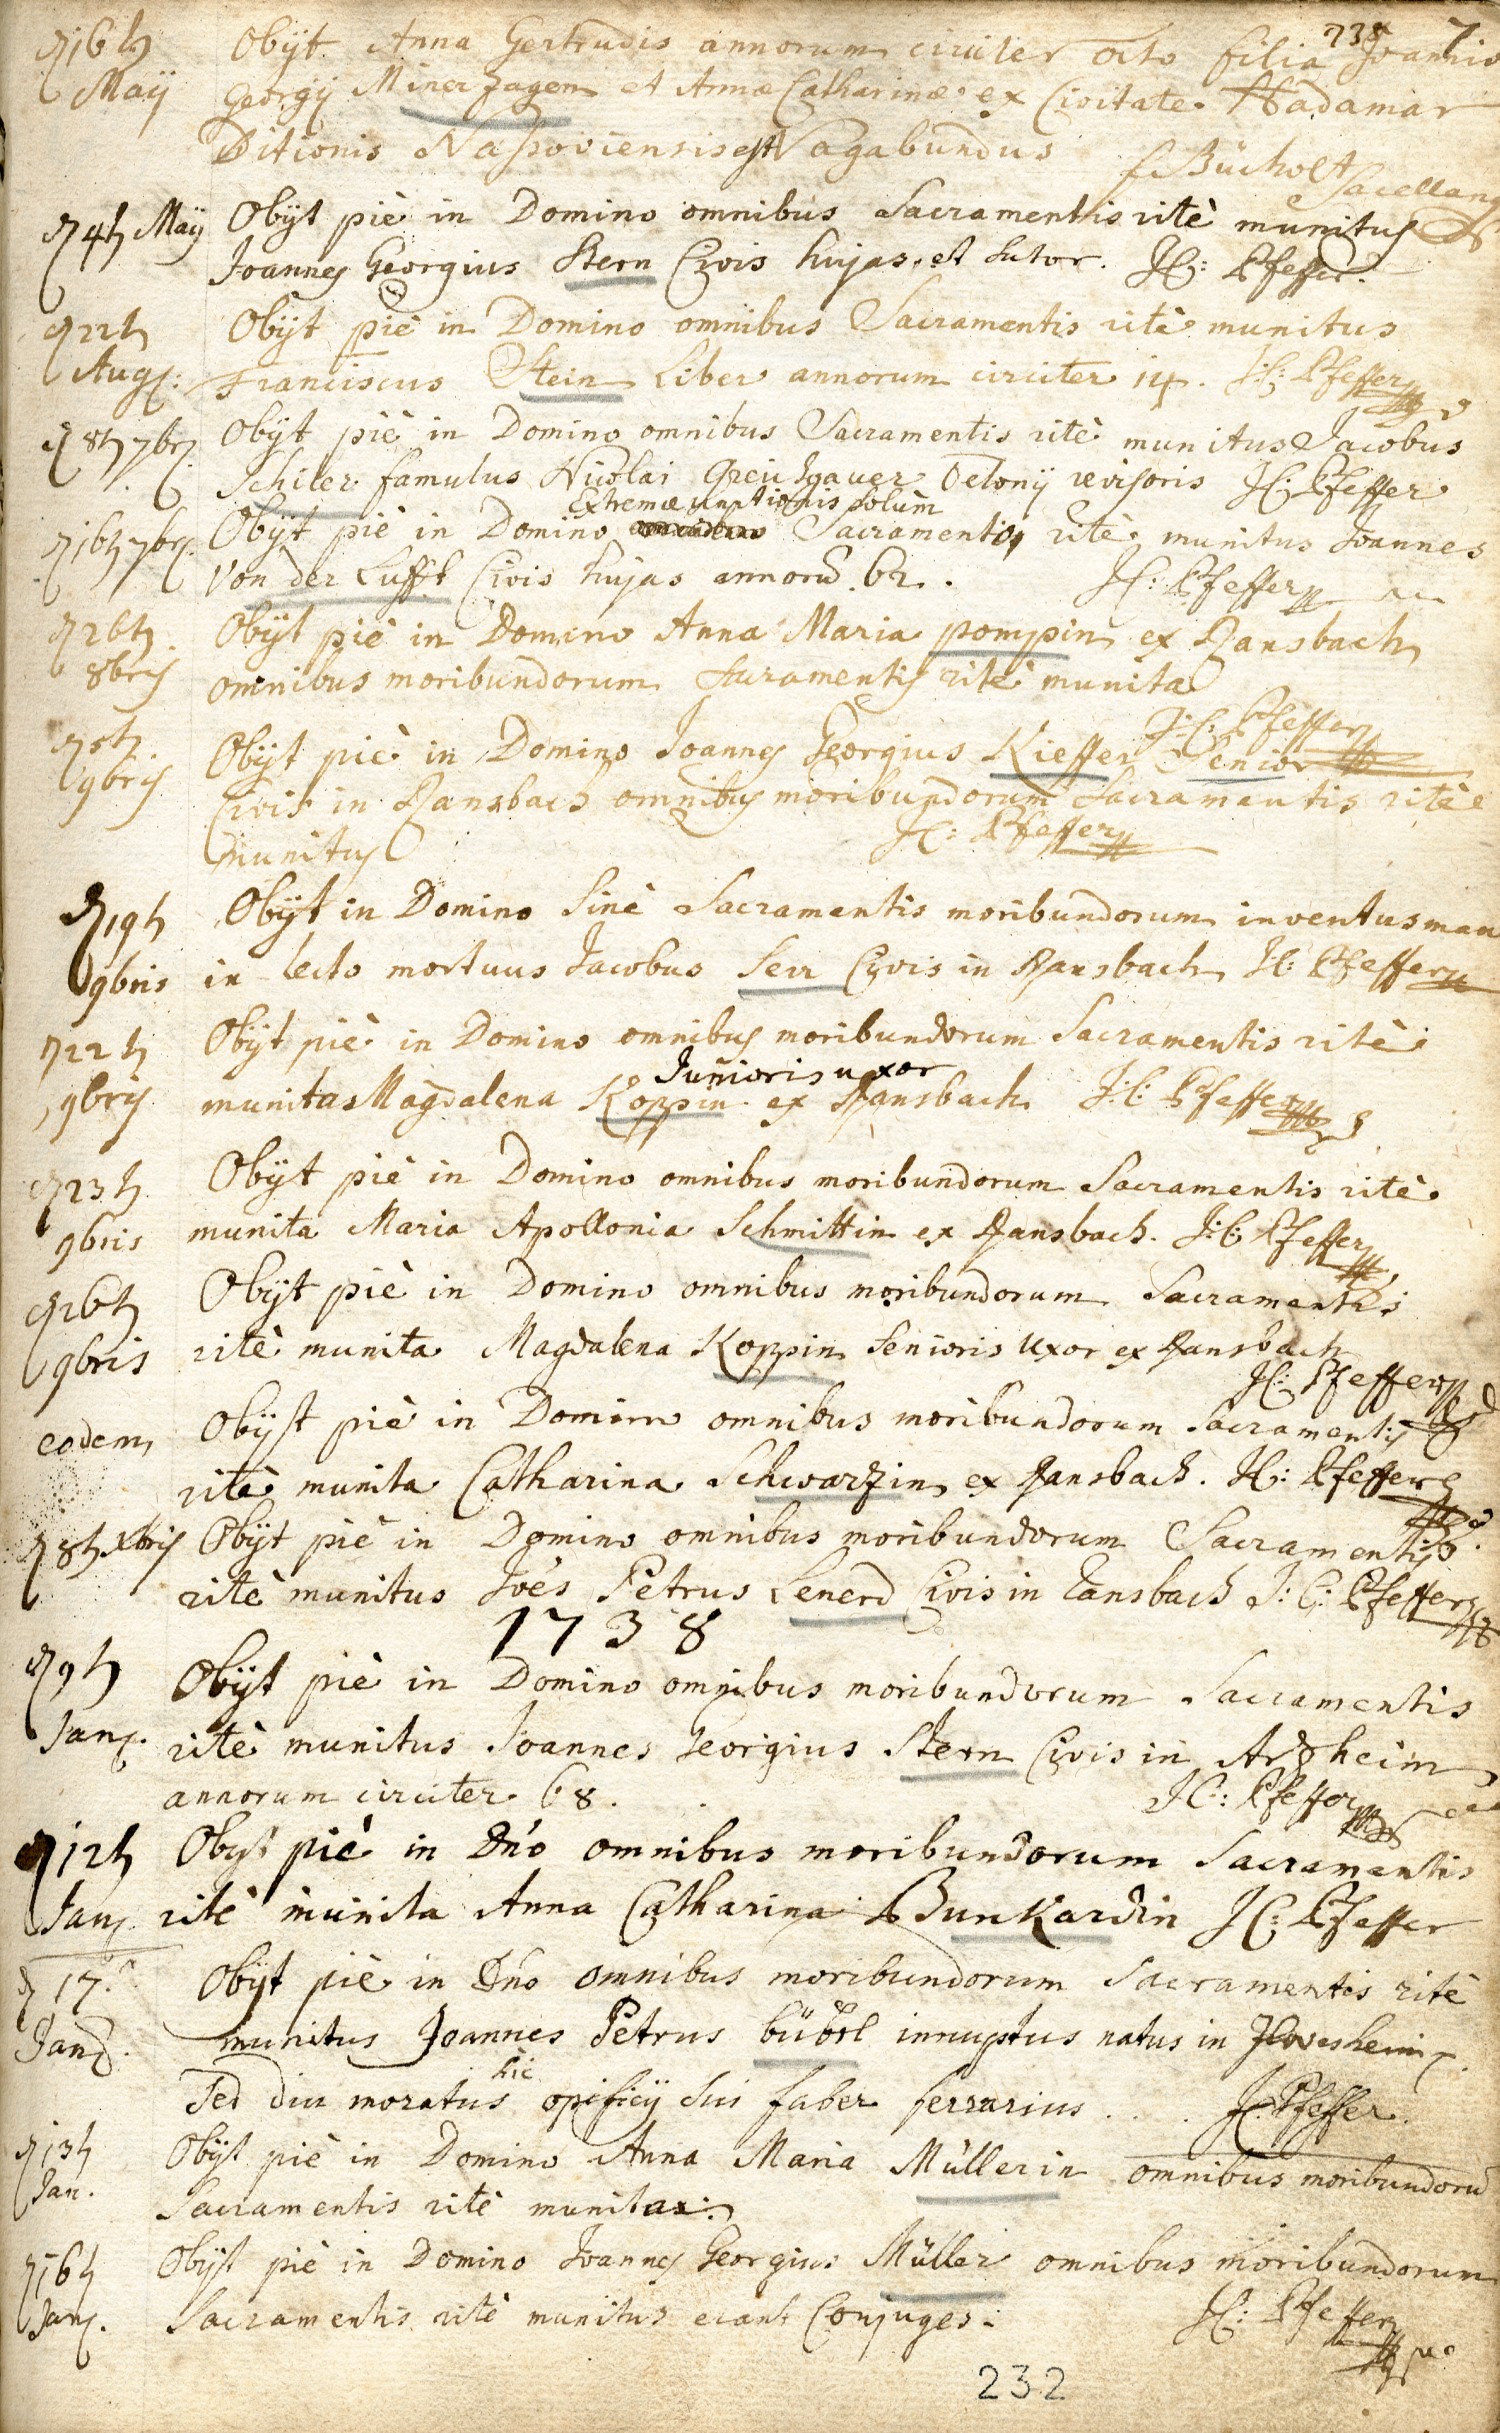 738 7
d 16t Obijt Anna Gertrudis annorum circiter octo filia Joannis
Maij Georgij Minerzagen et Annæ Catharinæ ex Civitate Hadamar
Ditionis Nassoviensis est Vagabundus
f Bucholt Sacellanus
d 4t Maij Obijt piè in Domino omnibus Sacramentis ritè munitus
Joannes Georgius Stern Civis hujas et sutor. JC: Pfeffer.
d 22t Obijt piè in Domino omnibus Sacramentis ritè munitus
Aug: Franciscus Stein Liber annorum circiter 14. J:C: Pfeffer
d 8t 7br. Obijt piè in Domino omnibus Sacramentis ritè munitus Jacobus
Schiler famulus Nicolai Telonij revisoris JC: Pfeffer
Extremæ unctionis solùm
d 16t 7br. Obijt piè in Domino Sacramento ritè munitus Joannes
Von der Lufft Civis hujas annorũ 62. JC: Pfeffer
d 26t Obijt piè in Domino Anna Maria pompin ex Ransbach
8bris omnibus moribundorum Sacramentis ritè munita
J:C: Pfeffer
d 5t Obijt piè in Domino Joannes Georgius Kieffer Senior
9bris Civis in Ransbach omnibus moribundorum Sacramentis ritè
munitus JC: Pfeffer
d 19t Obijt in Domino Sinè Sacramentis moribundorum inventus man
9bris in lecto mortuus Jacobus Serr Civis in Ransbach JC: Pfeffer
d 22t Obijt piè in Domino omnibus moribundorum Sacramentis ritè
Junioris uxor
9bris munita Magdalena Koppin ex Ransbach J:C: Pfeffer
d 23t Obijt piè in Domino omnibus moribundorum Sacramentis ritè
9bris munita Maria Apollonia Schmittin ex Ransbach. J:C: Pfeffer
d 26t Obijt piè in Domino omnibus moribundorum Sacramentis
9bris ritè munita Magdalena Koppin Senioris Uxor ex Ransbach
JC: Pfeffer
eodem Obijt piè in Domino omnibus moribundorum Sacramentis
ritè munita Catharina Schwarzin ex Ransbach. JC: Pfeffer
d 8t Xbris Obijt piè in Domino omnibus moribundorum Sacramentis
ritè munitus Joẽs Petrus Lenerd Civis in Ransbach J:C: Pfeffer
1738
d 9t Obijt piè in Domino omnibus moribundorum Sacramentis
Jan. ritè munitus Joannes Georgius Stern Civis in Arzheim
annorum circiter 68. JC: Pfeffer
d 12t Obijt piè in Dño omnibus moribundorum Sacramentis
Jan. ritè munita Anna Catharina Bunkardin JC: Pfeffer
d 17. Obijt piè in Dño omnibus moribundorum Sacramentis ritè
Jan. munitus Joannes Petrus bübel innuptus natus in
hìc
Sed diu moratus opificij sui faber ferrarius . . . JC: Pfeffer.
d 13t Obijt piè in Domino Anna Maria Müllerin omnibus moribundorũ
Jan. Sacramentis ritè munita:
d 16t Obijt piè in Domino Joannes Georgius Müller omnibus moribundorum
Jan. Sacramentis ritè munitus erant Conjuges.
JC: Pfeffer
232